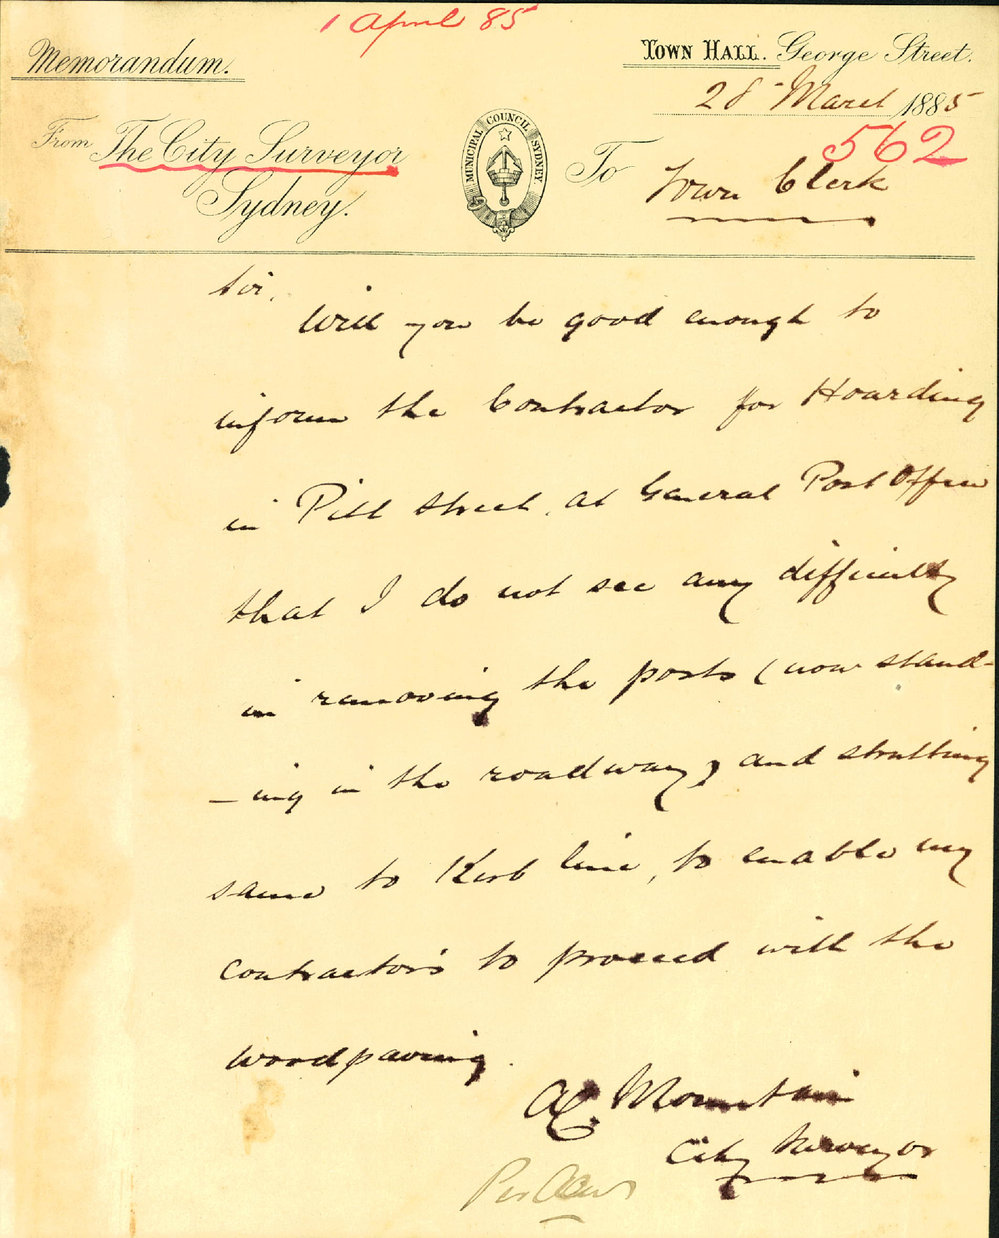 1 April 85
Memorandum.
TOWN HALL. George Street.
28 March 1885
562
From The City Surveyor
Sydney.
MUNICIPAL COUNCIL SYDNEY.
To
Town Clerk
Sir,
Will you be good enough to
inform the Contractor for Hoarding
in Pitt Street, at General Post Office
that I do not see any difficulty
in removing the posts (now stand-
-ing in the roadway) and strutting
same to Kerb line, to enable my
contractors to proceed with the
woodpaving.
AC. Mountain
City Surveyor
Per